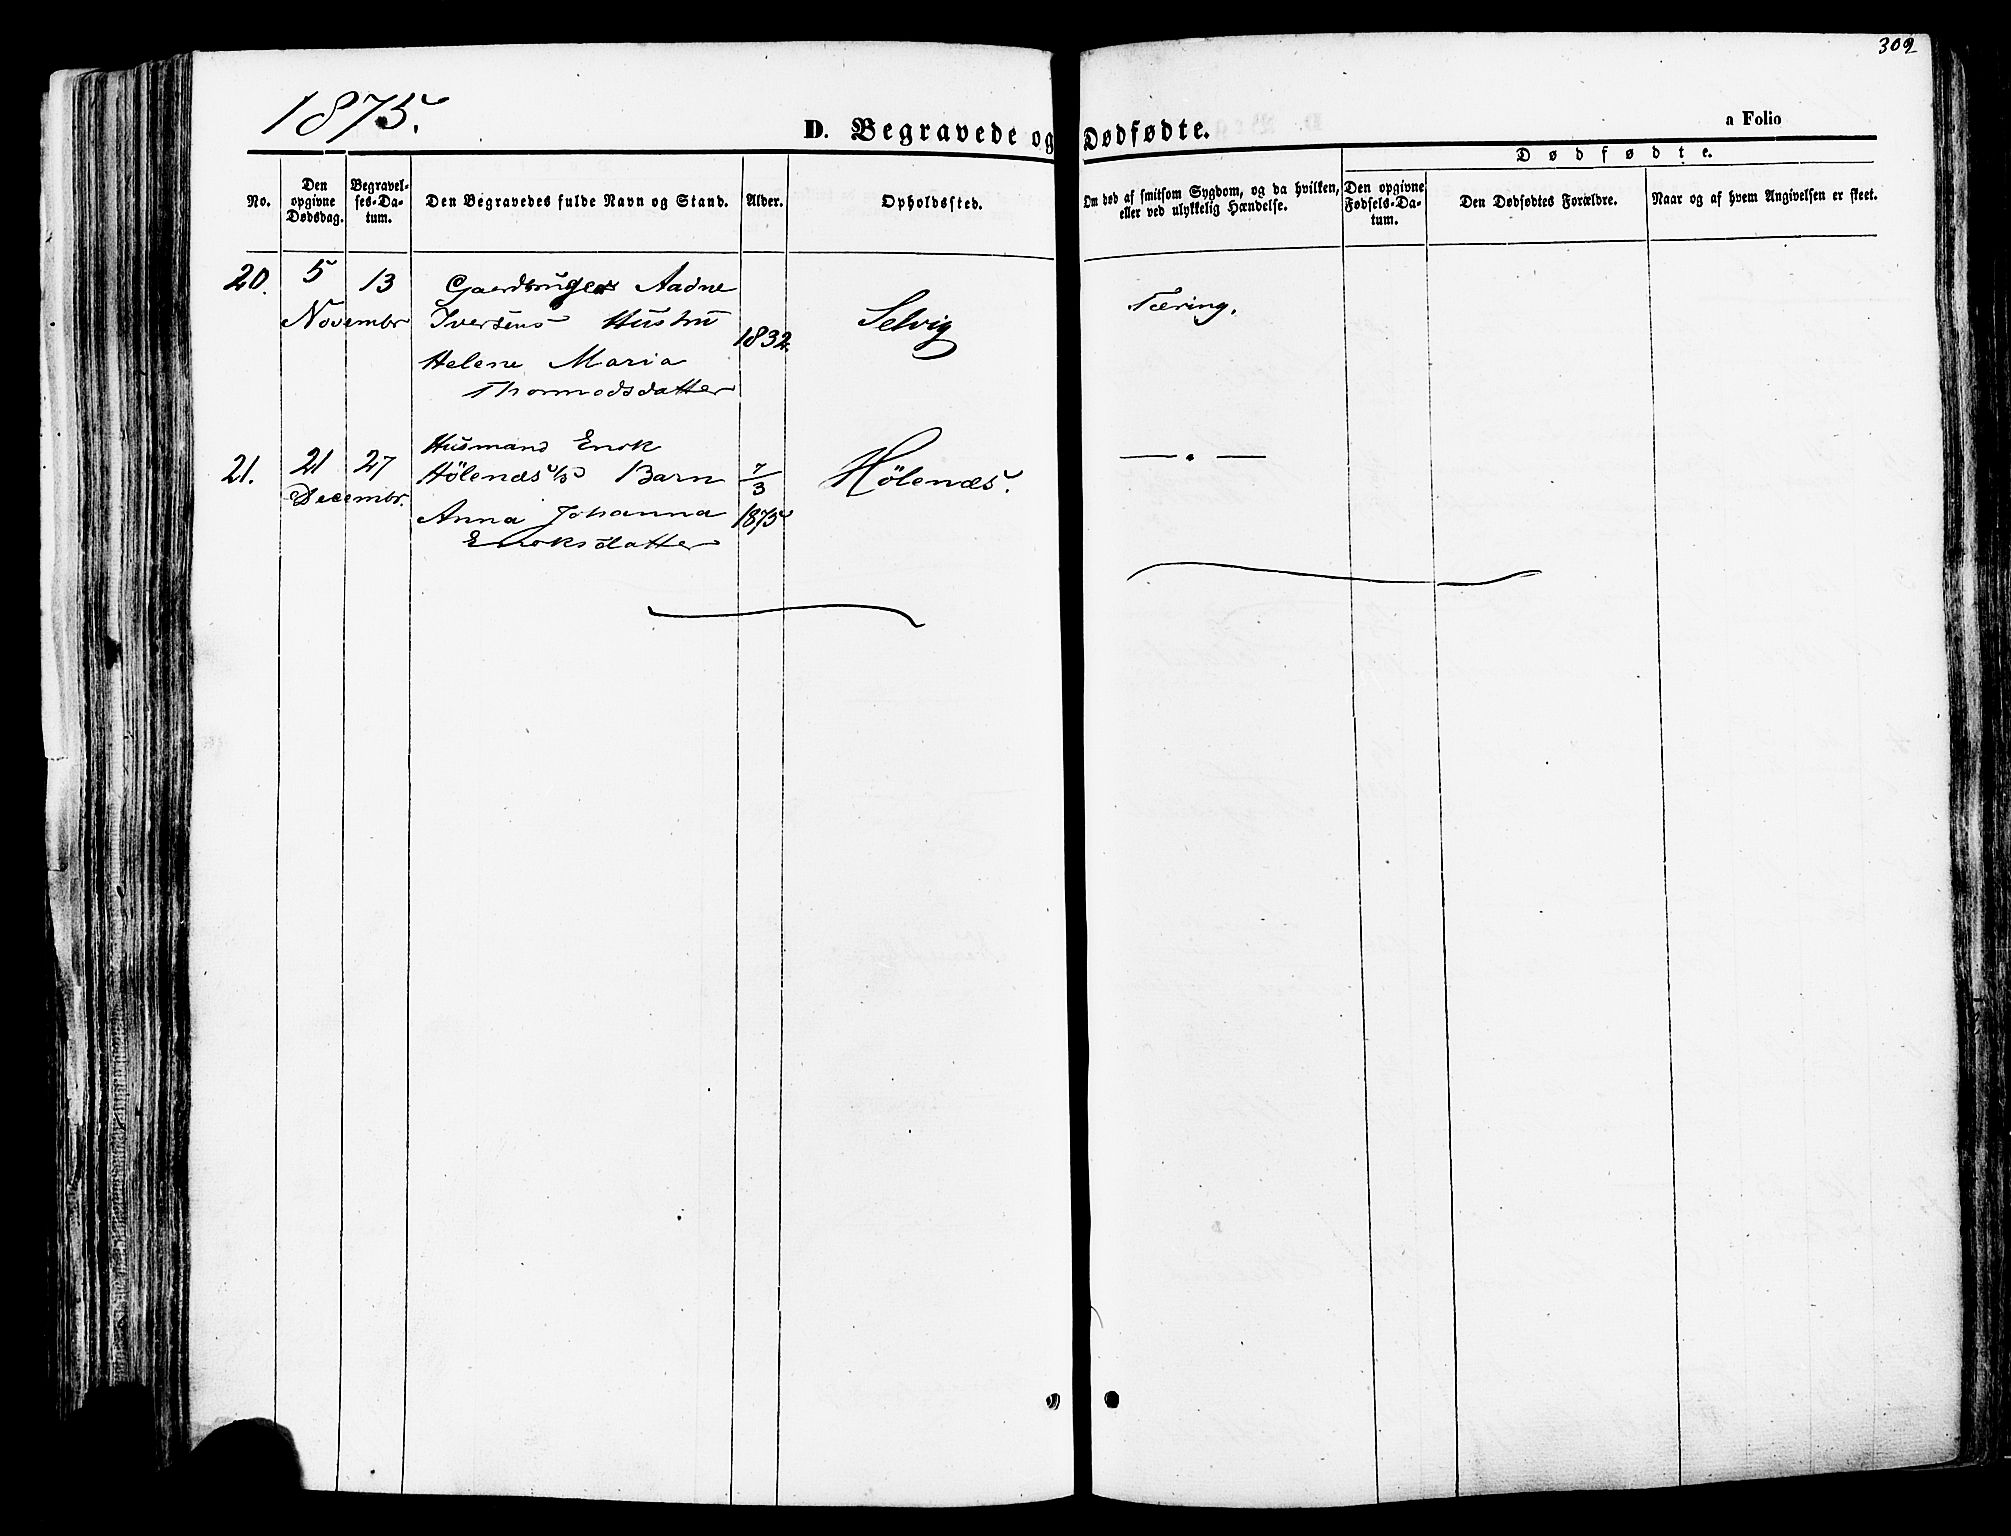 302
1875.
D. Begravede og Dødfødte.
a Folio
No.
Den opgivne Dødsdag.
Begravelses-Datum.
Den Begravedes fulde Navn og Stand.
Alder.
Opholdssted.
Om død af smitsom Sygdom, og da hvilken, eller ved ulykkelig Hændelse.
Dødfødte.
Den opgivne Fødsels-Datum.
Den Dødfødtes Forældre.
Naar og af hvem Angivelsen er skeet.
20. 5 13 Gaardbruger Aadne
Novembr Iversens Hustru 1832. Selvig Tæring.
Helene Maria
Thormodsdatter
Husmand Enok
21. 21 27 Hölenæs's Barn 7/3 Hölenæs. — " —
Decembr. Anna Johanna 1875
Enoksdatter